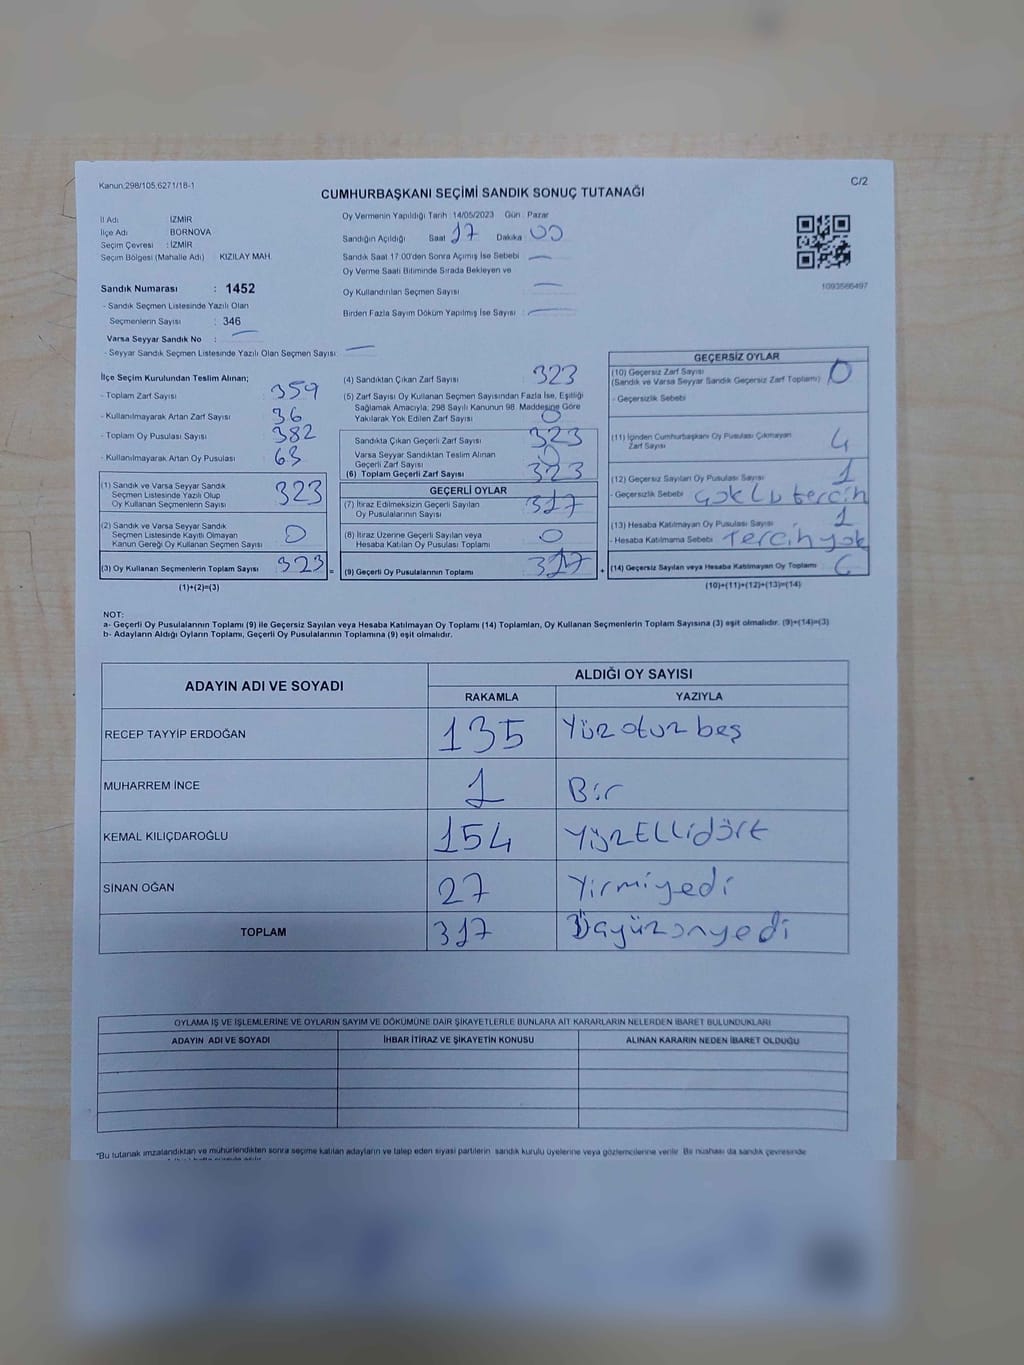 Kanun:298/105,6271/18-1
C/2
CUMHURBAŞKANI SEÇİMİ SANDIK SONUÇ TUTANAĞI
İl Adı : İZMİR
İlçe Adı : BORNOVA
Seçim Çevresi : İZMİR
Seçim Bölgesi (Mahalle Adı) : KIZILAY MAH.
Sandık Numarası : 1452
- Sandık Seçmen Listesinde Yazılı Olan
Seçmenlerin Sayısı : 346
Varsa Seyyar Sandık No :
- Seyyar Sandık Seçmen Listesinde Yazılı Olan Seçmen Sayısı:
Oy Vermenin Yapıldığı Tarih : 14/05/2023 Gün : Pazar
Sandığın Açıldığı Saat : 17 Dakika : 00
Sandık Saat 17.00'den Sonra Açımış İse Sebebi
Oy Verme Saati Bitiminde Sırada Bekleyen ve
Oy Kullandırılan Seçmen Sayısı
Birden Fazla Sayım Döküm Yapılmış İse Sayısı :
1093566497
İlçe Seçim Kurulundan Teslim Alınan;
- Toplam Zarf Sayısı : 359
- Kullanılmayarak Artan Zarf Sayısı : 36
- Toplam Oy Pusulası Sayısı : 382
- Kullanılmayarak Artan Oy Pusulası : 63
(1) Sandık ve Varsa Seyyar Sandık
Seçmen Listesinde Yazılı Olup
Oy Kullanan Seçmenlerin Sayısı 323
(2) Sandık ve Varsa Seyyar Sandık
Seçmen Listesinde Kayıtlı Olmayan
Kanun Gereği Oy Kullanan Seçmen Sayısı 0
(3) Oy Kullanan Seçmenlerin Toplam Sayısı 323 =
(1)+(2)=(3)
(4) Sandıktan Çıkan Zarf Sayısı : 323
(5) Zarf Sayısı Oy Kullanan Seçmen Sayısından Fazla İse, Eşitliği
Sağlamak Amacıyla; 298 Sayılı Kanunun 98. Maddesine Göre
Yakılarak Yok Edilen Zarf Sayısı : 0
Sandıkta Çıkan Geçerli Zarf Sayısı : 323
Varsa Seyyar Sandıktan Teslim Alınan
Geçerli Zarf Sayısı : 0
(6) Toplam Geçerli Zarf Sayısı 323
GEÇERLİ OYLAR
(7) İtiraz Edilmeksizin Geçerli Sayılan
Oy Pusulalarının Sayısı 317
(8) İtiraz Üzerine Geçerli Sayılan veya
Hesaba Katılan Oy Pusulası Toplamı 0
(9) Geçerli Oy Pusulalarının Toplamı 317 +
GEÇERSİZ OYLAR
(10) Geçersiz Zarf Sayısı
(Sandık ve Varsa Seyyar Sandık Geçersiz Zarf Toplamı) : 0
- Geçersizlik Sebebi
(11) İçinden Cumhurbaşkanı Oy Pusulası Çıkmayan
Zarf Sayısı 4
(12) Geçersiz Sayılan Oy Pusulası Sayısı : 1
- Geçersizlik Sebebi : Çoklu tercih
(13) Hesaba Katılmayan Oy Pusulası Sayısı : 1
- Hesaba Katılmama Sebebi : Tercih yok
(14) Geçersiz Sayılan veya Hesaba Katılmayan Oy Toplamı : 6
(10)+(11)+(12)+(13)=(14)
NOT:
a- Geçerli Oy Pusulalarının Toplamı (9) ile Geçersiz Sayılan veya Hesaba Katılmayan Oy Toplamı (14) Toplamları, Oy Kullanan Seçmenlerin Toplam Sayısına (3) eşit olmalıdır. (9)+(14)=(3)
b- Adayların Aldığı Oyların Toplamı, Geçerli Oy Pusulalarının Toplamına (9) eşit olmalıdır.
ADAYIN ADI VE SOYADI ALDIĞI OY SAYISI
RAKAMLA YAZIYLA
RECEP TAYYİP ERDOĞAN 135 Yüz otuz beş
MUHARREM İNCE 1 Bir
KEMAL KILIÇDAROĞLU 154 YüzELLidört
SİNAN OĞAN 27 Yirmiyedi
TOPLAM 317 Üçyüzonyedi
OYLAMA İŞ VE İŞLEMLERİNE VE OYLARIN SAYIM VE DÖKÜMÜNE DAİR ŞİKAYETLERLE BUNLARA AİT KARARLARIN NELERDEN İBARET BULUNDUKLARI
ADAYIN ADI VE SOYADI İHBAR İTİRAZ VE ŞİKAYETİN KONUSU ALINAN KARARIN NEDEN İBARET OLDUĞU
*Bu tutanak imzalandıktan ve mühürlendikten sonra seçime katılan adayların ve talep eden siyasi partilerin sandık kurulu üyelerine veya gözlemcilerine verilir. Bir nüshası da sandık çevresinde